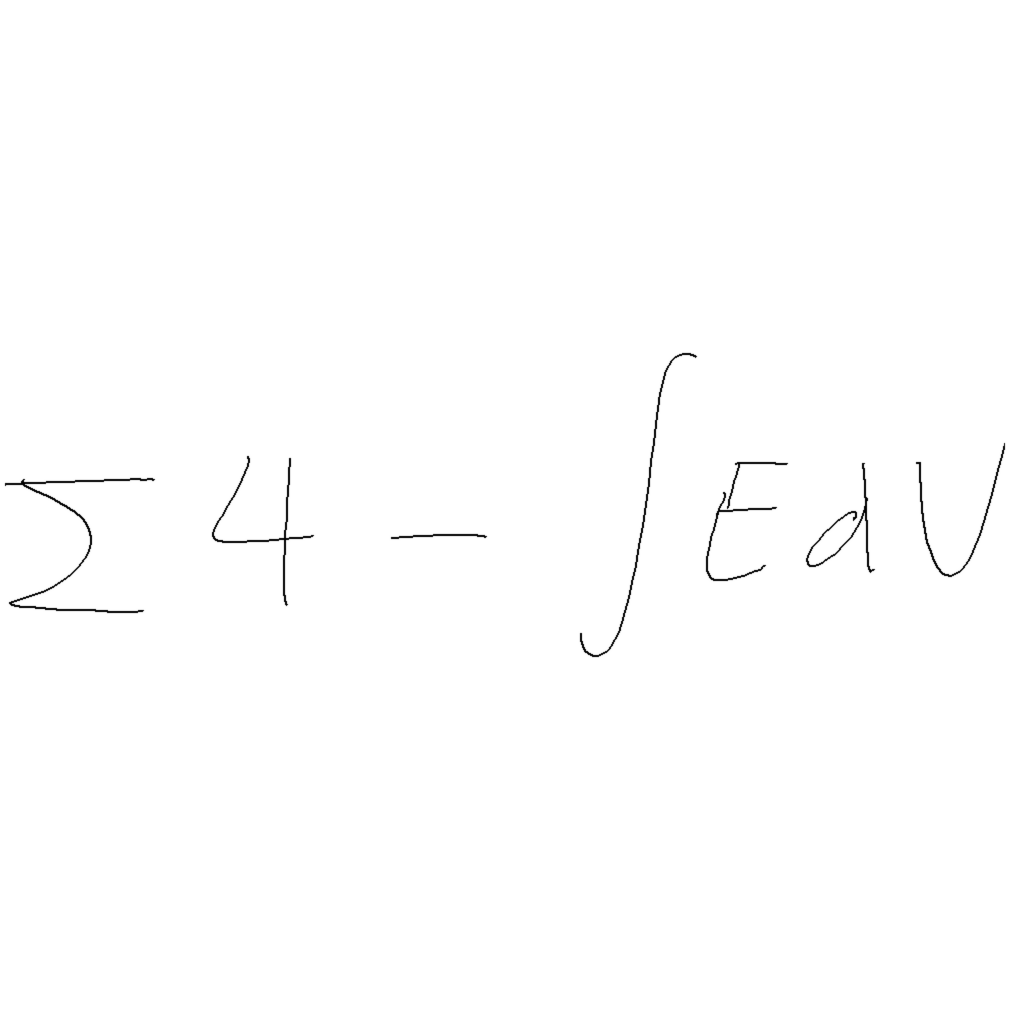 ∑ 4 − ∫ E d V